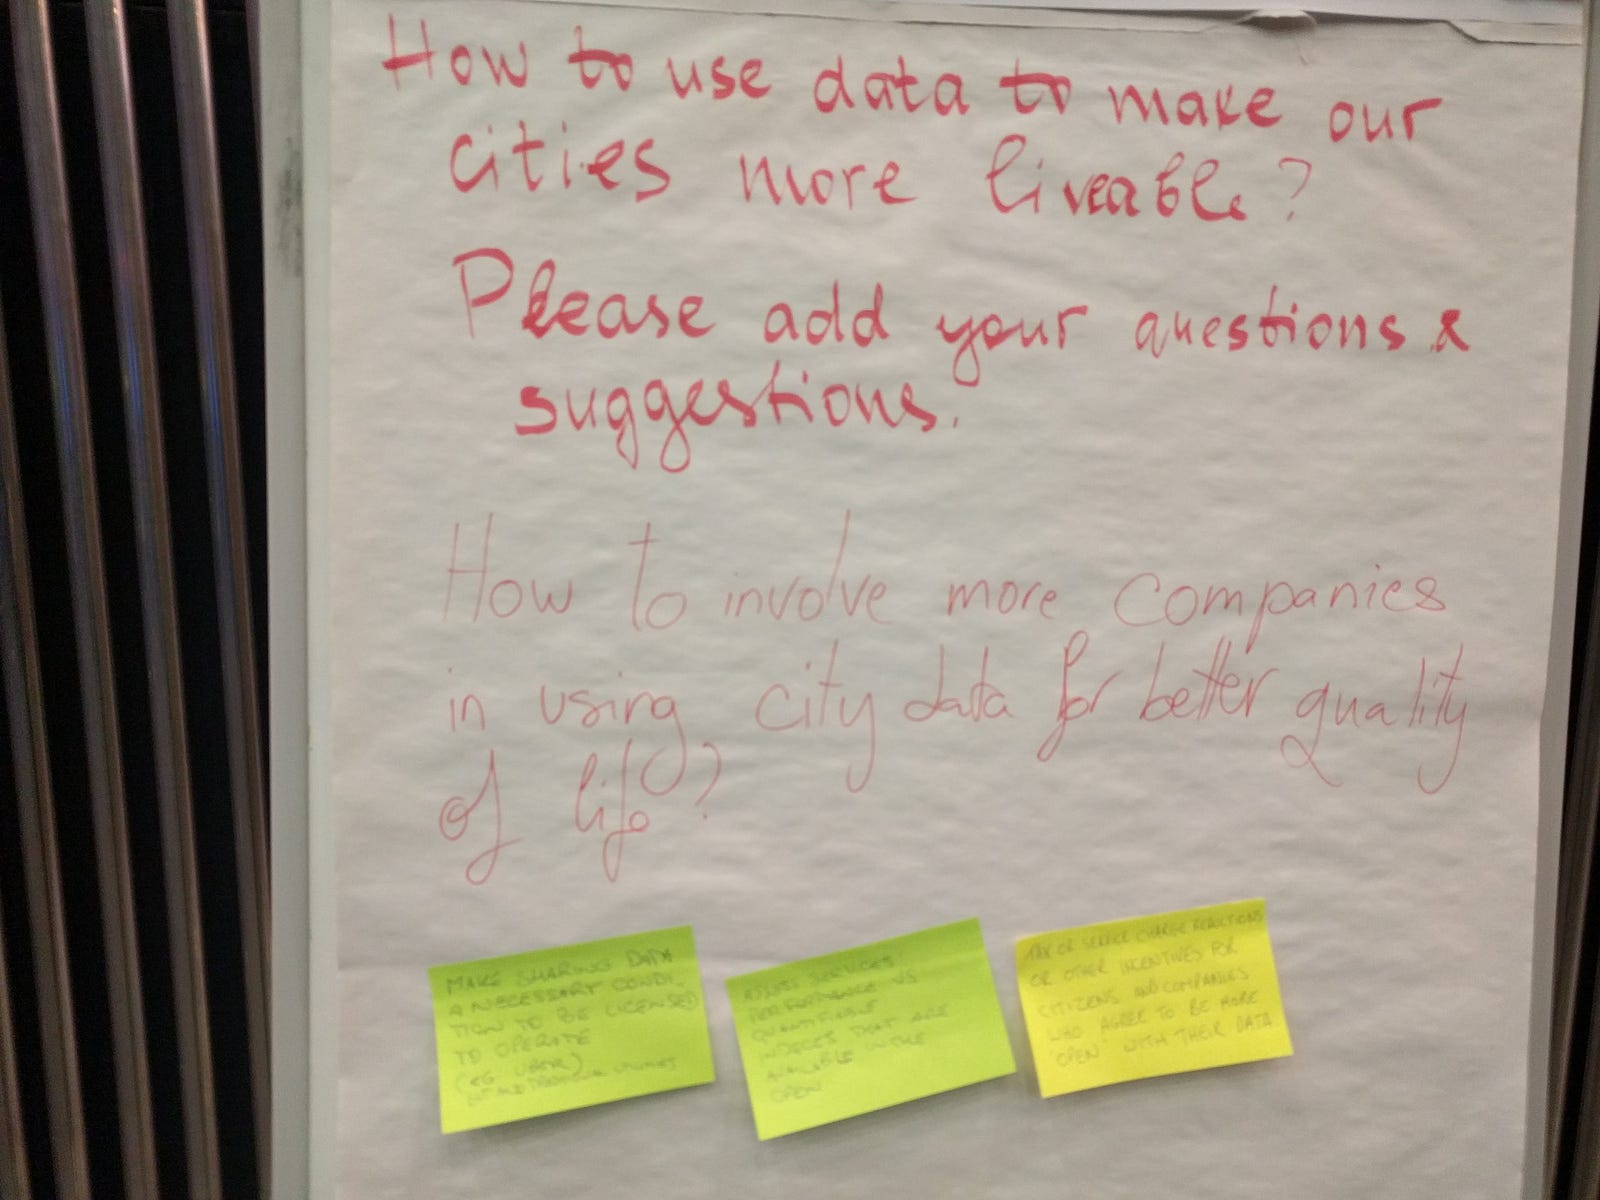 How to use data to make our
cities more liveable?
Please add your questions &
suggestions.
How to involve more companies
in using city data for better quality
of life?
MAKE SHARING DATA
A NECESSARY CONDI-
TION TO BE LICENSED
TO OPERATE
(EG UBER)
ASSESS SERVICES'
PERFORMANCE VS
QUANTIFIABLE
INDECES THAT ARE
AVAILABLE IN THE
OPEN
TAX OR SERVICE CHARGE REDUCTIONS
OR OTHER INCENTIVES FOR
CITIZENS AND COMPANIES
WHO AGREE TO BE MORE
"OPEN" WITH THEIR DATA.